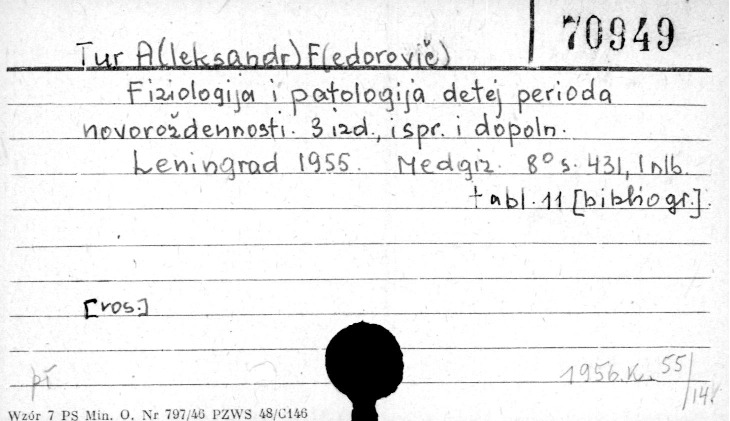 70949
Tur A(leksandr) F(edorovič)
Fiziologija i patologija detej perioda
novoroždennosti. 3 izd., ispr. i dopoln.
Leningrad 1955. Medgiz. 8° s. 431, 1 nlb.
tabl. 11 [bibliogr.].
[ros.]
pł
1956.K. 55/141
Wzór 7 PS Min. O. Nr 797/46 PZWS 48/G146